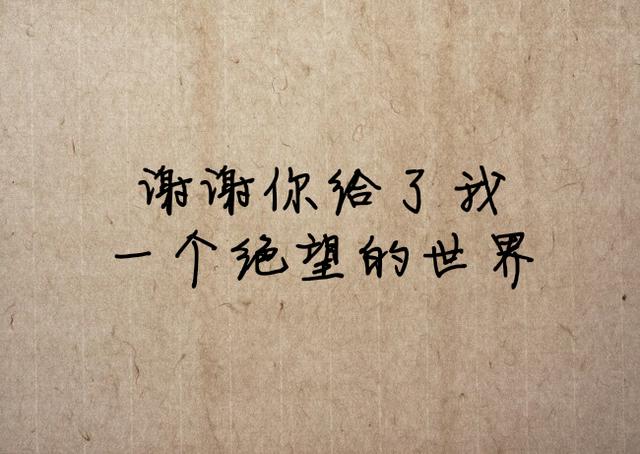 谢谢你给了我
一个绝望的世界